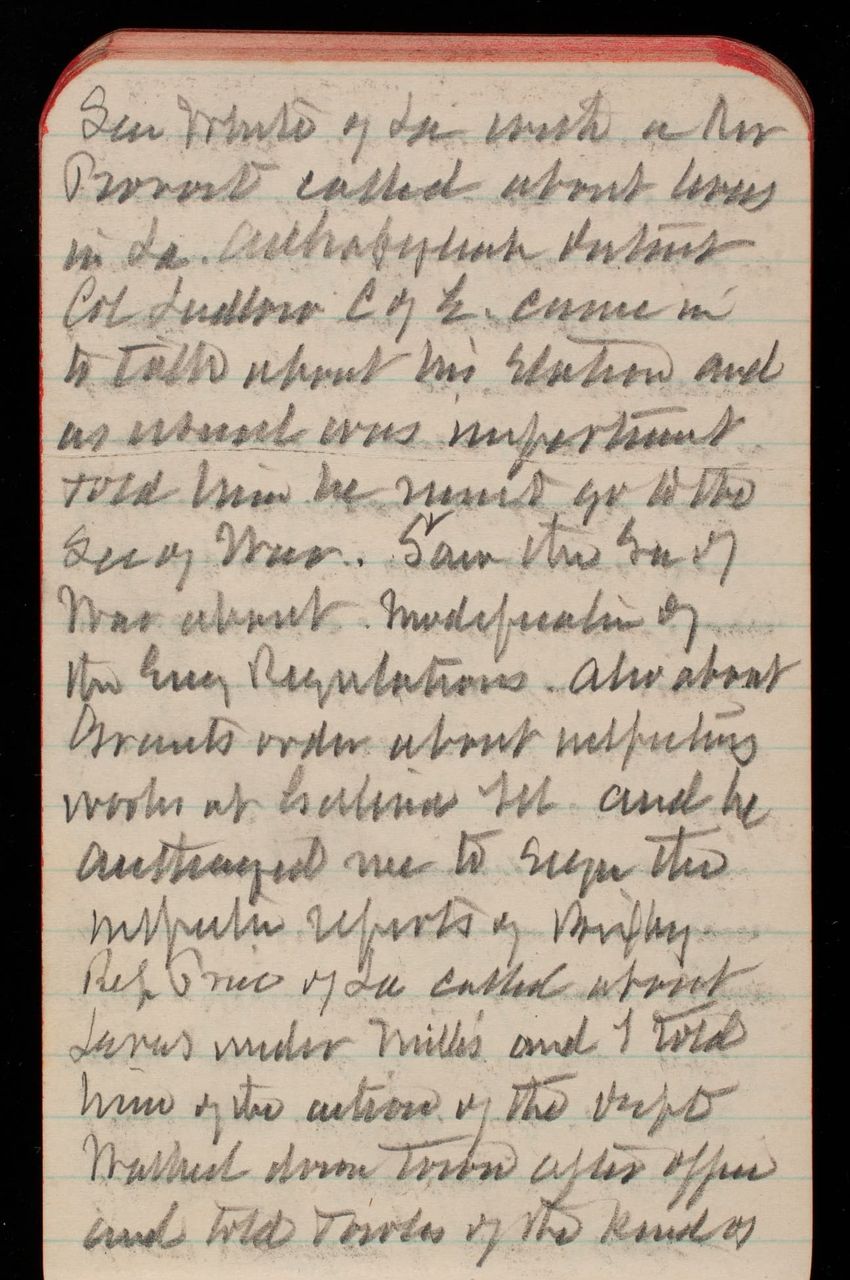 Sen White of La with a Rev
Provost called about levees
in La. Atchafalaya district
Col Ludlow C of E. came in
to talk about his station and
as usual was important
told him he must go to the
Sec of War. Saw the Sec of
War about Modification of
the Eng Regulations. Also about
Grants order about inspecting
works at and he
me to the
inspection reports of Bixby
Rep Price of La called about
Levees under Millis and I told
him of the action of the Dept
Walked down Town after office
and told Towles of the kind of